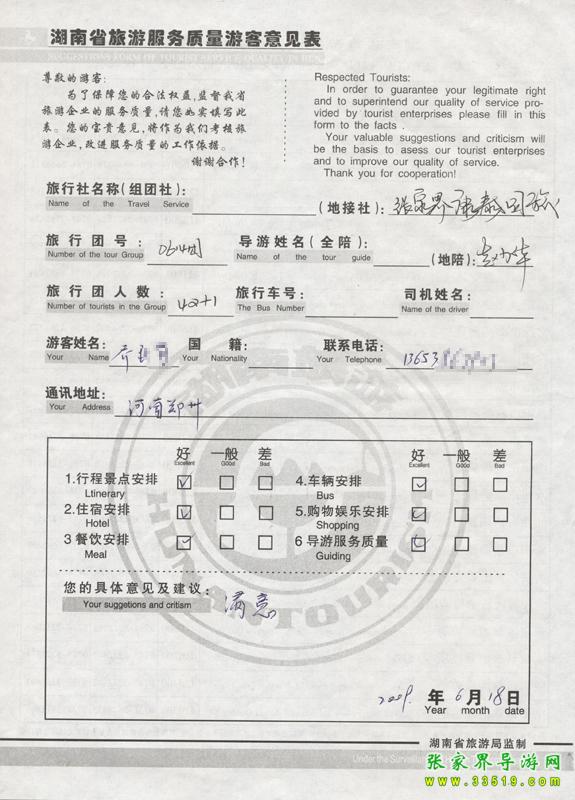 湖南省旅游服务质量游客意见表
SUGGESTIONS FORM OF TOURIST SERVICE QUALITY IN HUNAN
尊敬的游客:
为了保障您的合法权益,监督我省
旅游企业的服务质量,请您如实填写此
表。您的宝贵意见,将作为我们考核旅
游企业,改进服务质量的工作依据。
谢谢合作!
Respected Tourists:
In order to guarantee your legitimate right
and to superintend our quality of service pro-
vided by tourist enterprises please fill in this
form to the facts .
Your valuable suggestions and criticism will
be the basis to asess our tourist enterprises
and to improve our quality of service.
Thank you for cooperation!
旅行社名称(组团社): (地接社): 张家界康泰国旅
Name of the Travel Service
旅行团号: 0614团 导游姓名(全陪): (地陪):
Number of the tour Group Name of the tour guide
旅行团人数: 42+1 旅行车号: 司机姓名:
Number of tourists in the Group The Bus Number Name of the driver
游客姓名: 国籍: 联系电话: 13653
Your Name Your Nationality Your Telephone
通讯地址: 河南郑州
Your Address
好 一般 差 好 一般 差
Excellent GOOd Bad Excellent GOOd Bad
1.行程景点安排 4.车辆安排
Ltinerary Bus
2.住宿安排 5.购物娱乐安排
Hotel Shopping
3 餐饮安排 6 导游服务质量
Meal Guiding
您的具体意见及建议: 满意
Your suggetions and critism
2009. 年 6 月 18 日
Year month date
湖南省旅游局监制
Under the Surveill
张家界导游网
www.33519.com